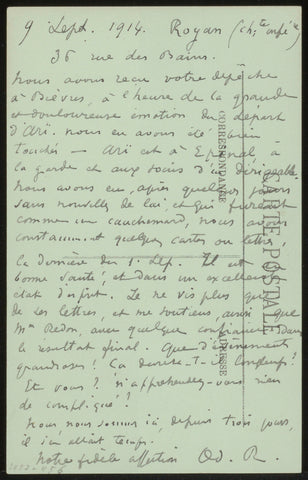 9 Sept. 1914. Royan (Ch.te Infé.re)
36 rue des Bains.
Nous avons reçu votre dépêche
à Bièvres, à l'heure de la grande
et douloureuse émotion du départ
d'Arï. nous en avons été bien
touchés — Arï est à Epinal à
la garde et aux soins d'un dirigeable.
Nous avons eu, après quelques jours
sans nouvelle de lui, et qui furent
comme un cauchemard, nous avons
constamment quelques cartes ou lettres,
la dernière du 1. Sep. Il est
bonne santé, et dans un excellent
état d'esprit. Je ne vis plus que
de ses lettres, et me soutiens, ainsi que
Mme Redon, avec quelque confiance dans
le résultat final. Que d'événements
grandioses! Ça durera-t-il longtemps!
Et vous? n'appréhendez-vous rien
de compliqué?
Nous nous sommes ici, depuis trois jours,
il en était temps.
Notre fidèle affection Od. R.
CARTE POSTALE
CORRESPONDANCE
ADRESSE